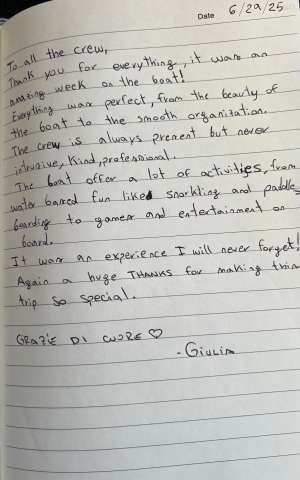 Date 6/29/25
To all the crew,
Thank you for everything, it was an
amazing week on the boat!
Everything was perfect, from the beauty of
the boat to the smooth organization.
The crew is always present but never
intrusive, kind, professional.
The boat offer a lot of activities, from
water based fun like snorkling and paddle
boarding to games and entertainment on
board.
It was an experience I will never forget!
Again a huge THANKS for making this
trip so special.
GRAZIE DI CUORE ♡
- GIULIA